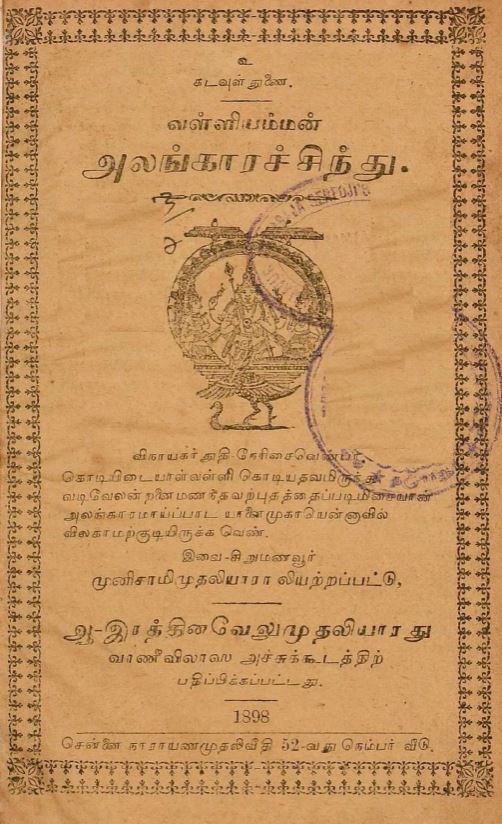 உ
கடவுள் துணை.
வள்ளியம்மன்
அலங்காரச்சிந்து.
விநாயகர் துதி-நேரிசைவெண்பா.
கொடியிடையாள்வள்ளி கொடியதவமிருந்து
வடிவேலன் றனைமணந்தவற்புதத்தைப்படிமிசையான்
அலங்காரமாய்ப்பாட யானைமுகாயென்னாவில்
விலகாமற்குடியிருக்க வெண்.
இவை-சிறுமணவூர்
முனிசாமிமுதலியாரா லியற்றப்பட்டு,
ஆ-இரத்தினவேலுமுதலியாரது
வாணீவிலாஸ அச்சுக்கூடத்திற்
பதிப்பிக்கப்பட்டது.
1898
சென்னை நாராயணமுதலிவீதி 52-வது நெம்பர் வீடு.
SERFOJI'S